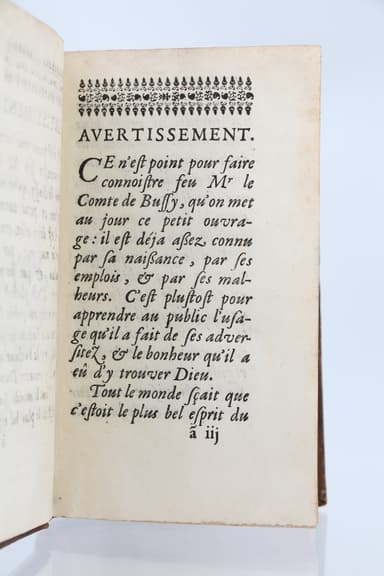 AVERTISSEMENT.
CE n'eſt point pour faire
connoiſtre feu Mr le
Comte de Buſſy, qu'on met
au jour ce petit ouvra-
ge : il eſt déja aßez connu
par ſa naißance, par ſes
emplois, & par ſes mal-
heurs. C'eſt pluſtoſt pour
apprendre au public l'uſa-
ge qu'il a fait de ſes adver-
ſitez, & le bonheur qu'il a
eû d'y trouver Dieu.
Tout le monde ſçait que
c'eſtoit le plus bel eſprit du
ã iij